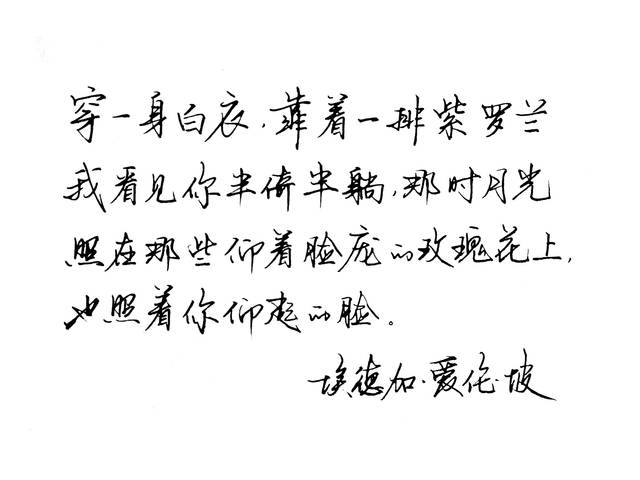 穿一身白衣,靠着一排紫罗兰
我看见你半倚半躺,那时月光
照在那些仰着脸庞的玫瑰花上,
也照着你仰起的脸。
埃德加·爱伦·坡